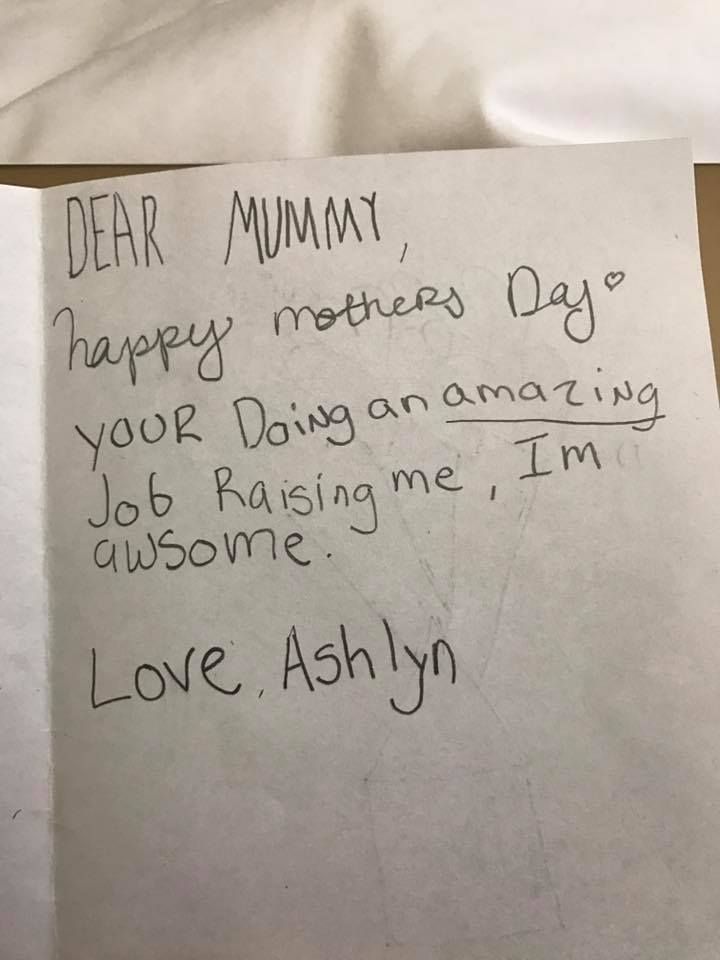 DEAR MUMMY,
happy mothers Day♡
YOUR Doing an amazing
Job Raising me, Im
awsome.
Love, Ashlyn